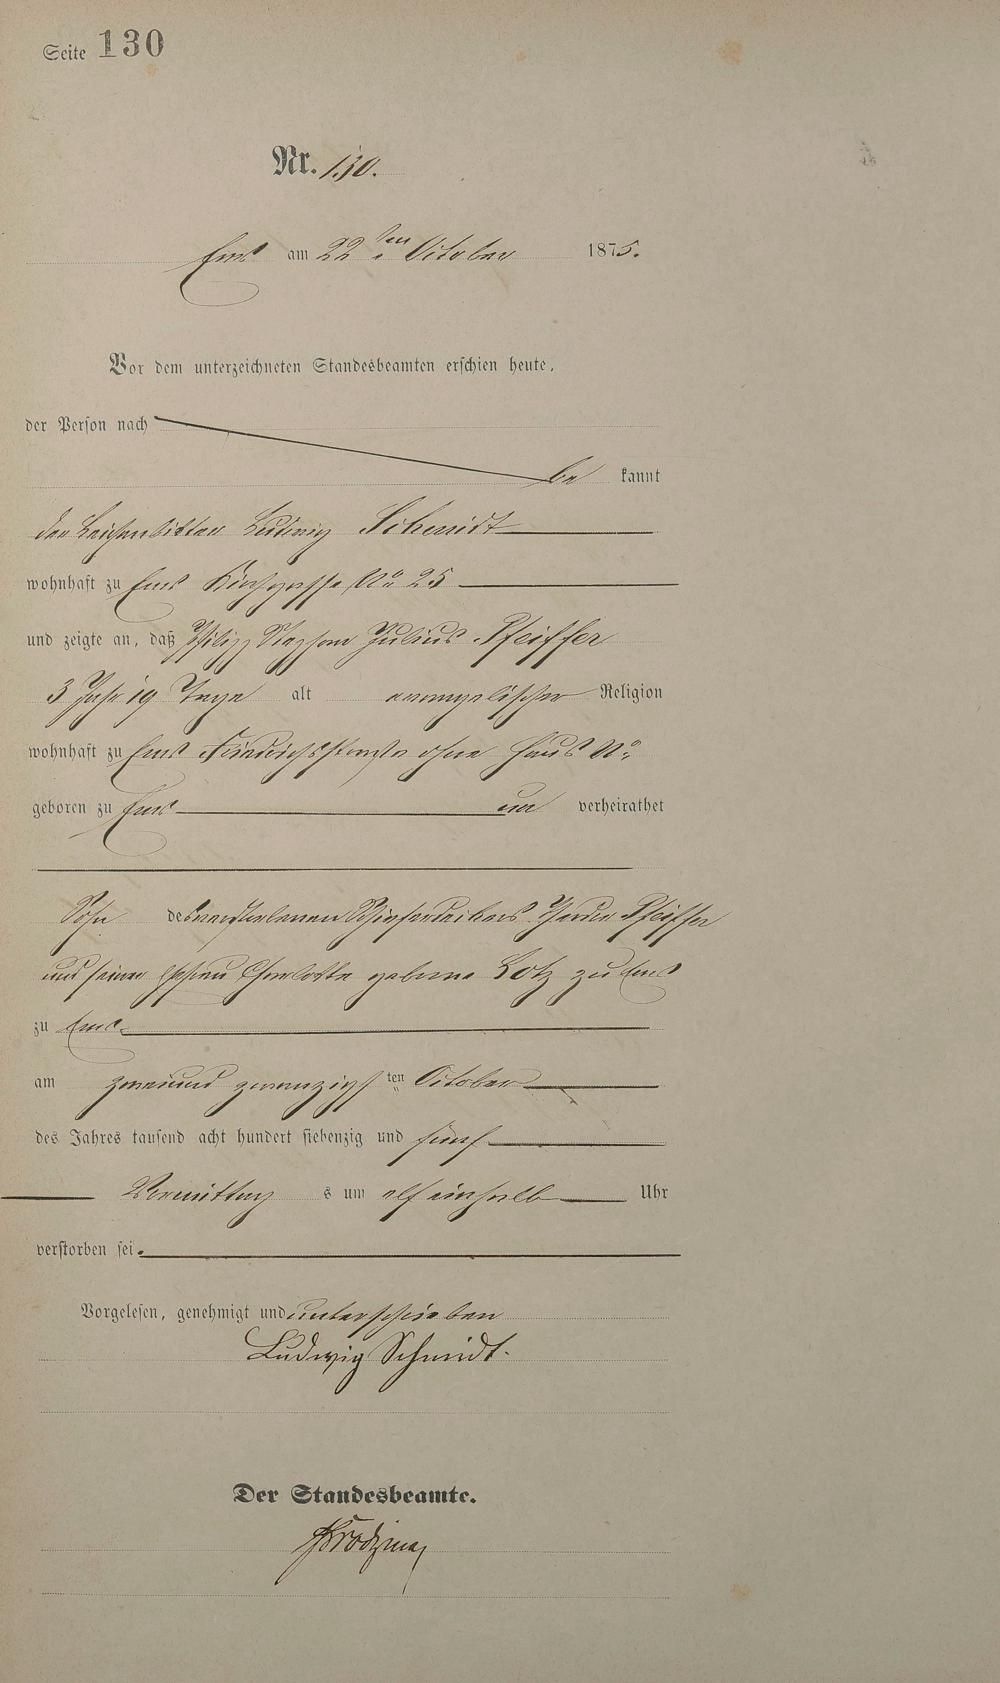 Seite 130
Nr. 130.
Ems am 22 ten October 1875.
Vor dem unterzeichneten Standesbeamten erschien heute,
der Person nach
be kannt
der Leichenbitter Ludwig Schmidt
wohnhaft zu Ems Kirchgasse No 25
und zeigte an, daß Philipp Stephan Julius Pfeiffer
3 Jahr 19 Tage alt evangelischer Religion
wohnhaft zu Ems Friedrichsstraße ohne Haus No
geboren zu Ems un verheirathet
Sohn des verstorbenen Pfeiffer
und seiner Ehefrau Charlotte geborne Lotz zu Ems
zu Ems
am zweiund zwanzigsten October
des Jahres tausend acht hundert siebenzig und fünf
Vormittag s um elf einhalb Uhr
verstorben sei.
Vorgelesen, genehmigt und unterschrieben
Ludwig Schmidt.
Der Standesbeamte.